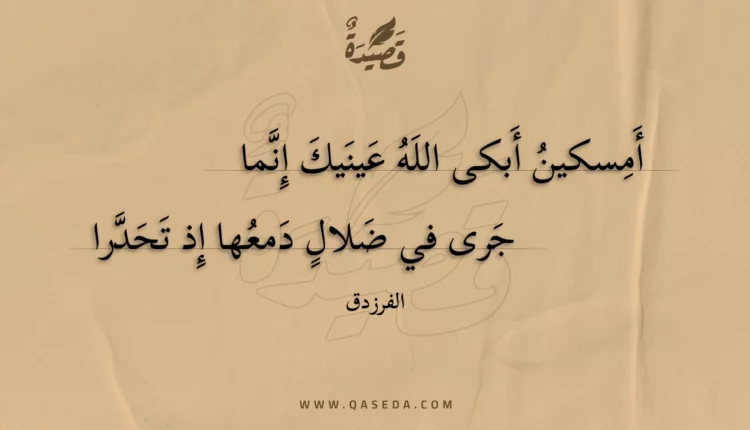 قَصِيْدَةٌ
أَمِسكينُ أَبكى اللَهُ عَينَيكَ إِنَّما
جَرى في ضَلالٍ دَمعُها إِذ تَحَدَّرا
الفرزدق
WWW.QASEDA.COM